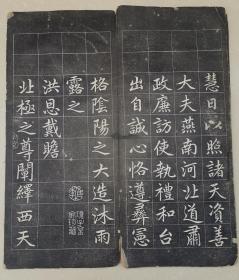 慧日以照諸天資善
大夫燕南河北道肅
政廉訪使執禮和台
出自誠心恪遵彞憲
格陰陽之大造沐雨
露之
洪恩戴瞻
北極之尊闡繹西天